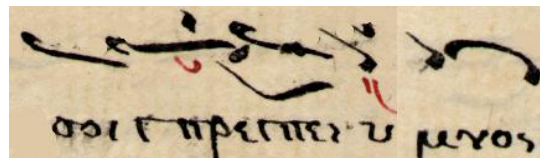 σοι πρεπει υ μνος